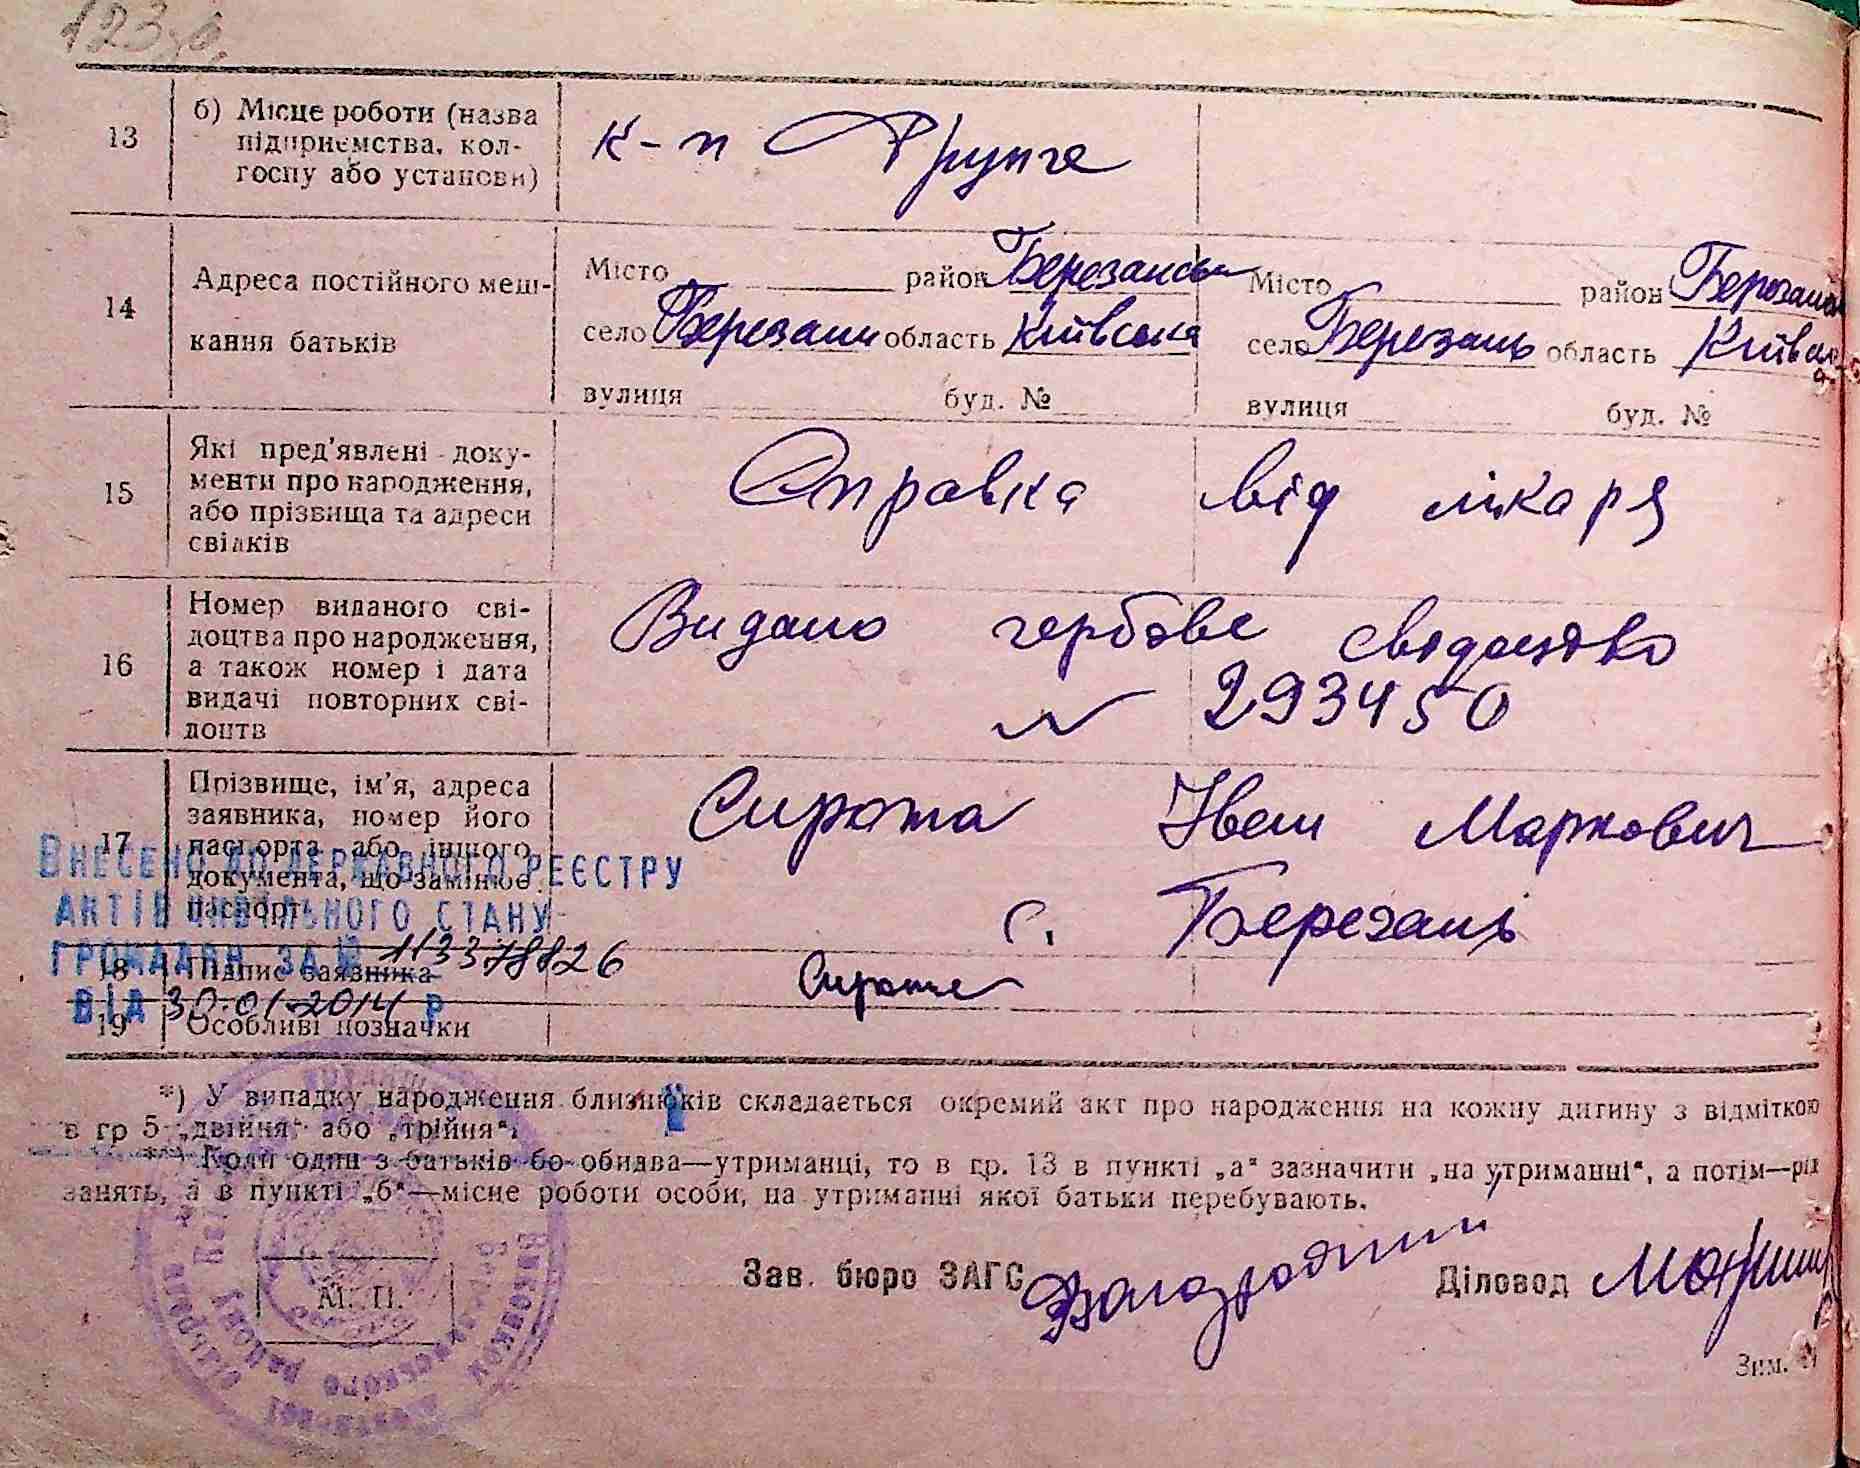 13
б) Місце роботи (назва
підприємства, кол-
госпу або установи)
к-п Фрунзе
14
Адреса постійного меш-
кання батьків
Місто район Березанськ
село Березань область Київська
вулиця буд. №
Місто район Березанськ
село Березань область Київська
вулиця буд. №
15
Які пред'явлені доку-
менти про народження,
або прізвища та адреси
свідків
Справка від лікаря
16
Номер виданого сві-
доцтва про народження,
а також номер і дата
видачі повторних сві-
доцтв
Видано гербове свідоцтво
№ 293450
17
Прізвище, ім'я, адреса
заявника, номер його
паспорта або іншого
документа, що замінює
паспорт
Сирота Іван Маркович
с. Березань
Внесено до Державного реєстру
актів цивільного стану
громадян за № 113378826
від 30.01.2014 р
18
Підпис заявника
Сирота
19
Особливі позначки
*) У випадку народження близнюків складається окремий акт про народження на кожну дитину з відміткою
в гр 5 „двійня" або „трійня".
**) Коли один з батьків бо обидва—утриманці, то в гр. 13 в пункті „а" зазначити „на утриманні", а потім—рід
занять, а в пункті „б"—місце роботи особи, на утриманні якої батьки перебувають.
М. П.
Зав. бюро ЗАГС
Діловод
Зам.